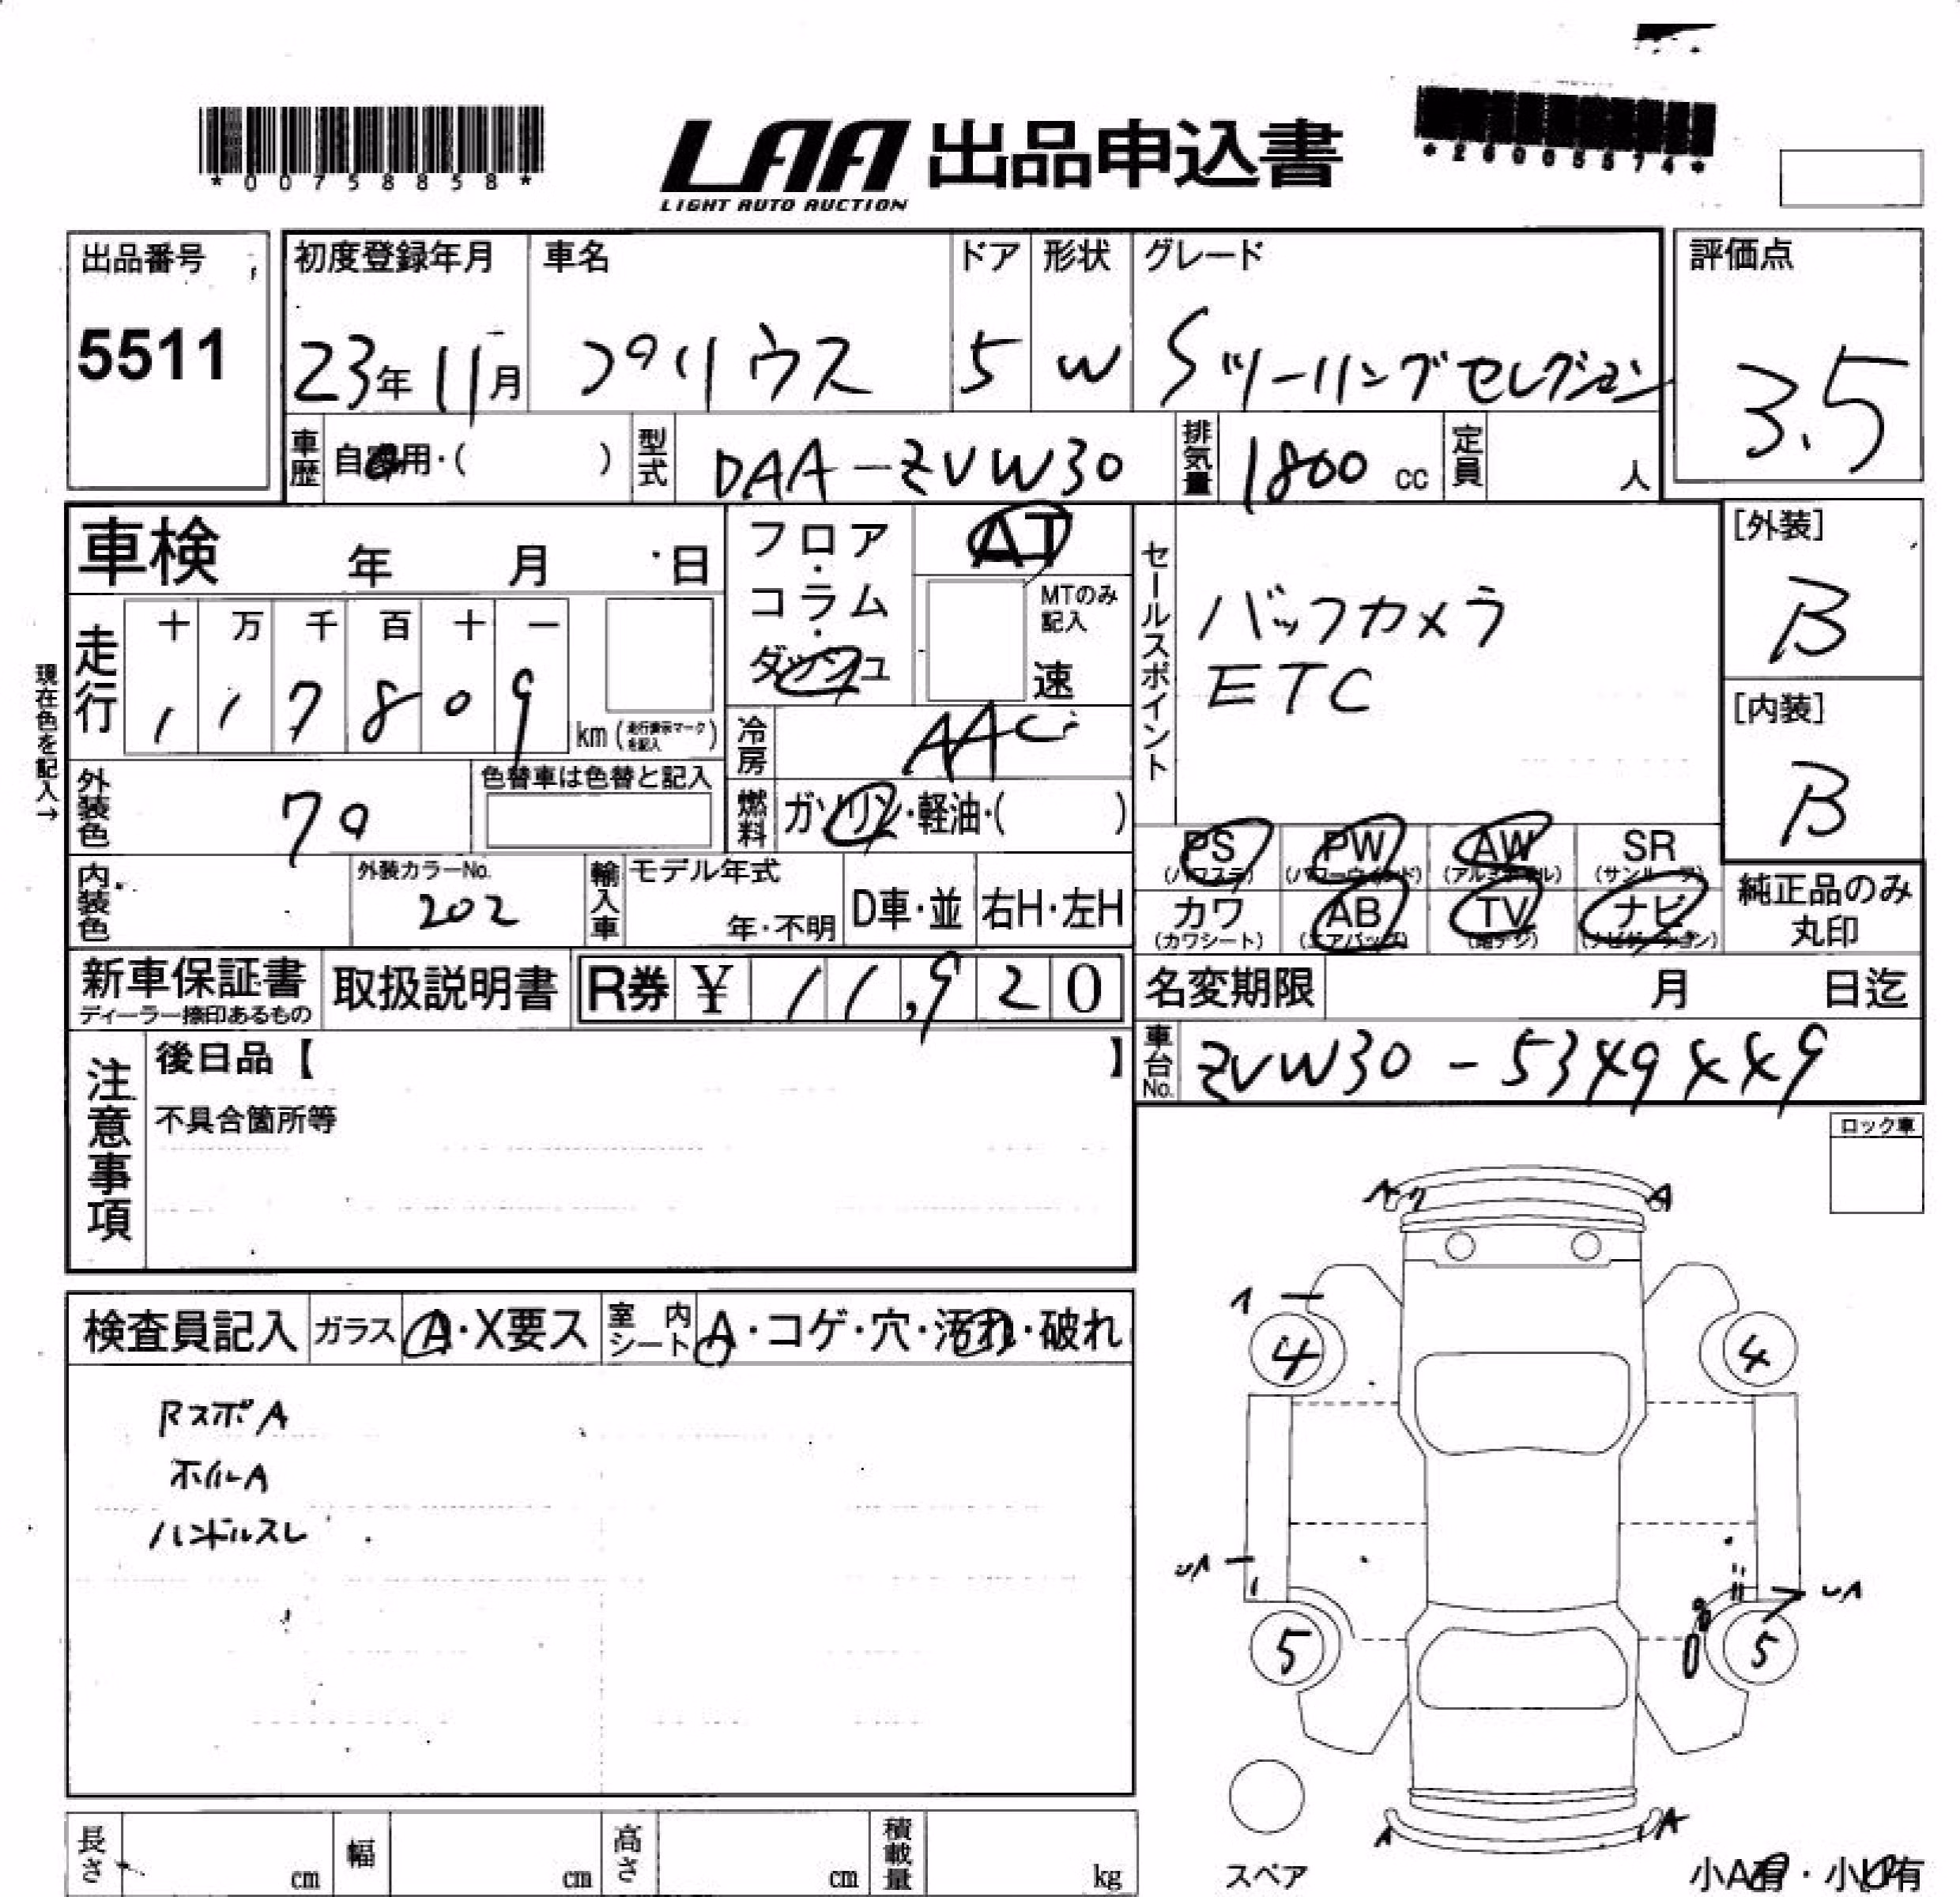 *00758858*
LAA 出品申込書
LIGHT AUTO AUCTION
*26005574*
出品番号
5511
初度登録年月 車名 ドア 形状 グレード
23年11月 プリウス 5 W Sツーリングセレクション
評価点
3.5
車歴 自家用・( ) 型式 DAA-ZVW30 排気量 1800 cc 定員 人
車検 年 月 日
フロア・コラム・ダッシュ
AT
MTのみ記入
速
セールスポイント
バックカメラ
ETC
[外装]
B
[内装]
B
現在色を記入→
走行 十 万 千 百 十 一
1 1 7 8 0 9 km (走行表示マークを記入)
冷房 AAC
外装色 70 色替車は色替と記入
燃料 ガソリン・軽油・( )
PS PW AW SR
(パワステ) (パワーウィンド) (アルミホイル) (サンルーフ)
カワ AB TV ナビ
(カワシート) (エアバッグ) (地デジ) (ナビゲーション)
純正品のみ
丸印
内装色 外装カラーNo. 202 輸入車 モデル年式 年・不明 D車・並 右H・左H
新車保証書 取扱説明書 R券 ¥ 11,920
ディーラー捺印あるもの
名変期限 月 日迄
車台No. ZVW30-5349449
注意事項
後日品【 】
不具合箇所等
ロック車
検査員記入 ガラス A・X要ス 室内シート A・コゲ・穴・汚れ・破れ
RスポA
ホイルA
ハンドルスレ
A A
1
4 4
5 5
A A
スペア
長さ cm 幅 cm 高さ cm 積載量 kg
小A有・小U有